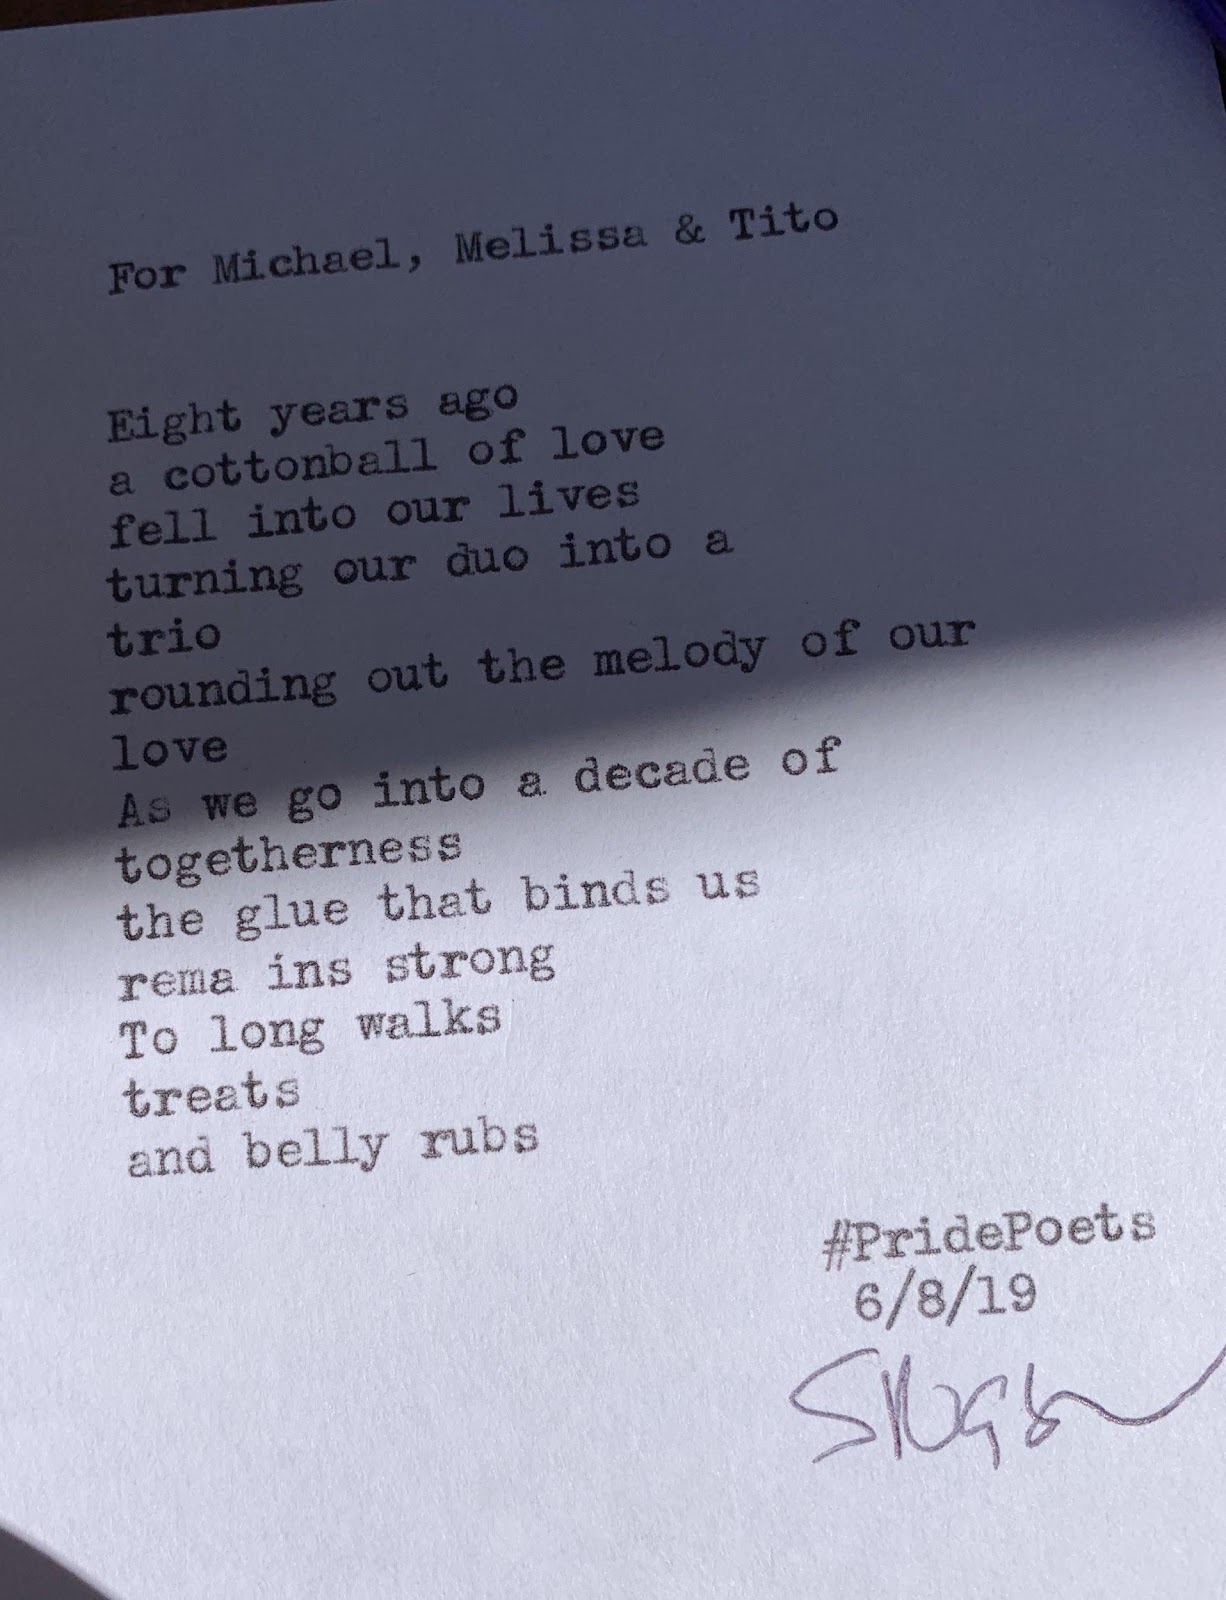 For Michael, Melissa & Tito
Eight years ago
a cottonball of love
fell into our lives
turning our duo into a
trio
rounding out the melody of our
love
As we go into a decade of
togetherness
the glue that binds us
rema ins strong
To long walks
treats
and belly rubs
#PridePoets
6/8/19